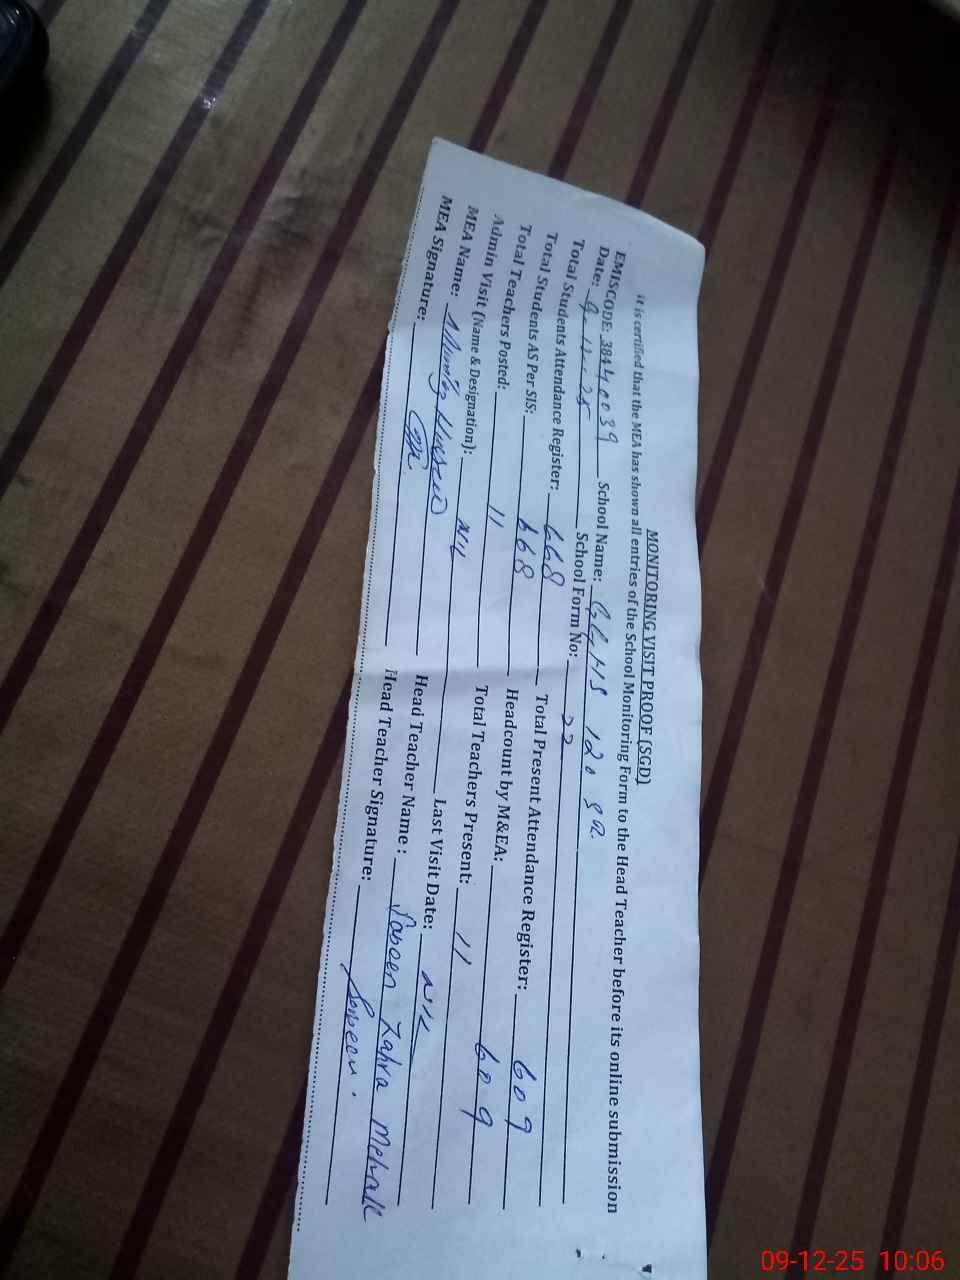 MONITORING VISIT PROOF (SGD)
it is certified that the MEA has shown all entries of the School Monitoring Form to the Head Teacher before its online submission
EMISCODE: 38440039 School Name: GGHS 120 SR.
Date: 9-12-25 School Form No: 22
Total Students Attendance Register: 668 Total Present Attendance Register: 609
Total Students AS Per SIS: 668 Headcount by M&EA: 609
Total Teachers Posted: 11 Total Teachers Present: 11
Admin Visit (Name & Designation): NIL Last Visit Date: NIL
MEA Name: Hussain Head Teacher Name : Sabeen Zahra Mehak
MEA Signature: Head Teacher Signature: Sabeen.
09-12-25 10:06